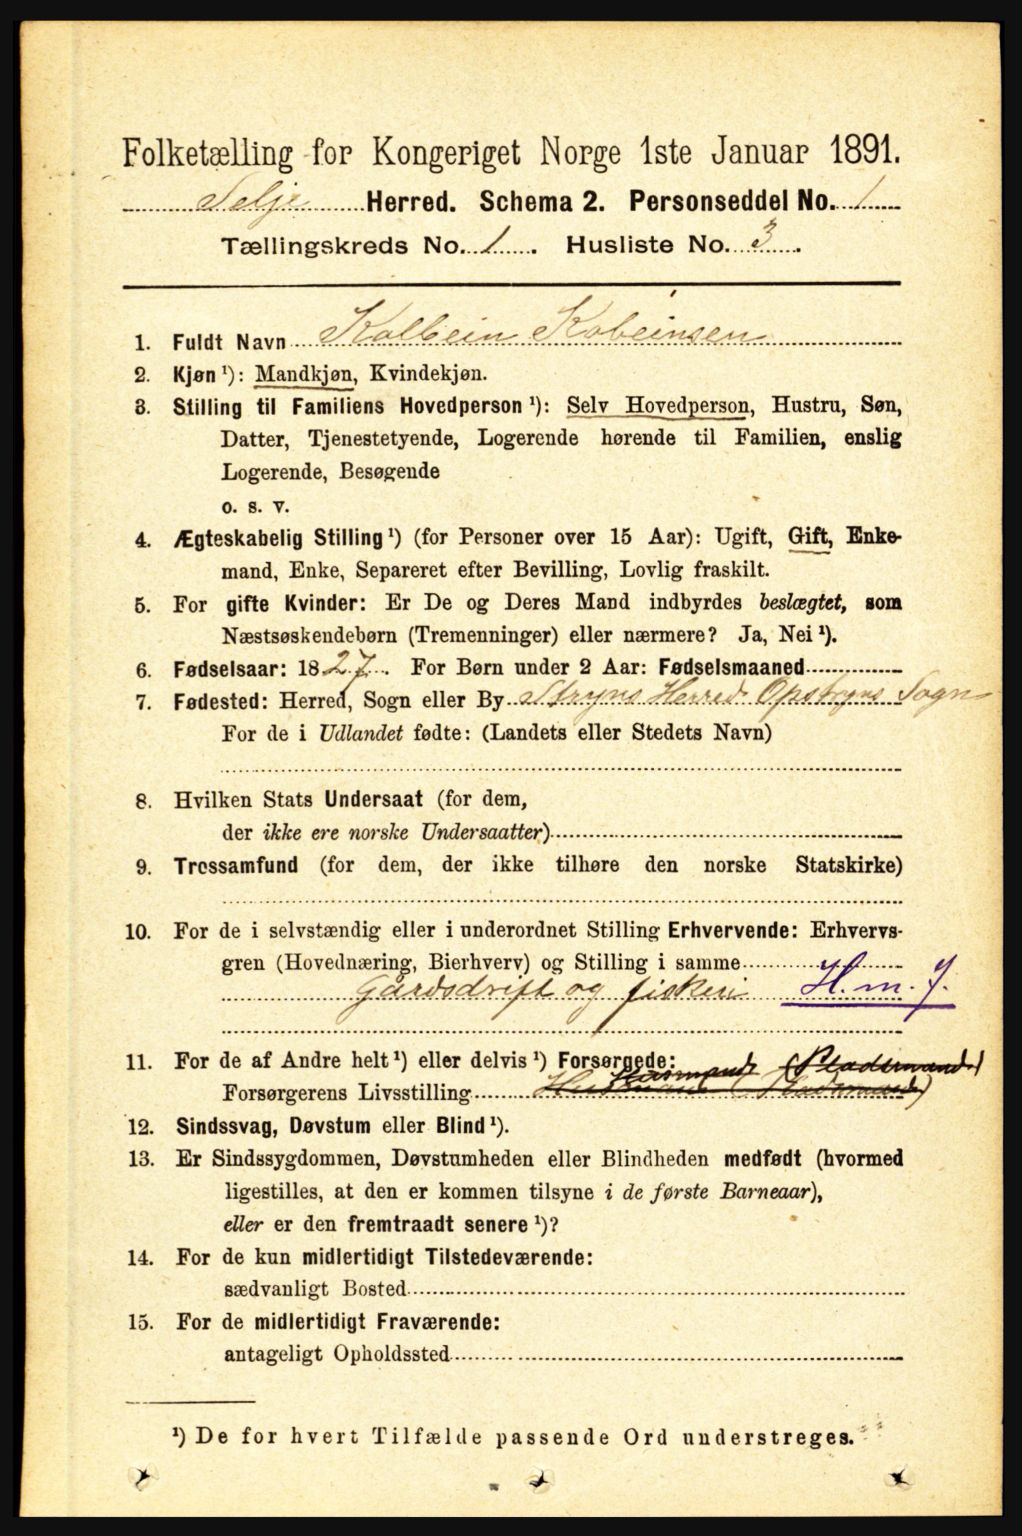 Folketælling for Kongeriget Norge 1ste Januar 1891.
Selje Herred. Schema 2. Personseddel No. 1
Tællingskreds No. 1. Husliste No. 3.
1. Fuldt Navn Kolbein Kobeinsen
2. Kjøn ¹): Mandkjøn, Kvindekjøn.
3. Stilling til Familiens Hovedperson ¹): Selv Hovedperson, Hustru, Søn,
Datter, Tjenestetyende, Logerende hørende til Familien, enslig
Logerende, Besøgende
o. s. v.
4. Ægteskabelig Stilling ¹) (for Personer over 15 Aar): Ugift, Gift, Enke-
mand, Enke, Separeret efter Bevilling, Lovlig fraskilt.
5. For gifte Kvinder: Er De og Deres Mand indbyrdes beslægtet, som
Næstsøskendebørn (Tremenninger) eller nærmere? Ja, Nei ¹).
6. Fødselsaar: 1827. For Børn under 2 Aar: Fødselsmaaned
7. Fødested: Herred, Sogn eller By Stryns Herred Opstryns Sogn
For de i Udlandet fødte: (Landets eller Stedets Navn)
8. Hvilken Stats Undersaat (for dem,
der ikke ere norske Undersaatter)
9. Trossamfund (for dem, der ikke tilhøre den norske Statskirke)
10. For de i selvstændig eller i underordnet Stilling Erhvervende: Erhvervs-
gren (Hovednæring, Bierhverv) og Stilling i samme
Gårdsdrift og fiskeri H. m. J.
11. For de af Andre helt ¹) eller delvis ¹) Forsørgede: (Pladsmand)
Forsørgerens Livsstilling Husmand
12. Sindssvag, Døvstum eller Blind ¹).
13. Er Sindssygdommen, Døvstumheden eller Blindheden medfødt (hvormed
ligestilles, at den er kommen tilsyne i de første Barneaar),
eller er den fremtraadt senere ¹)?
14. For de kun midlertidigt Tilstedeværende:
sædvanligt Bosted
15. For de midlertidigt Fraværende:
antageligt Opholdssted
¹) De for hvert Tilfælde passende Ord understreges.